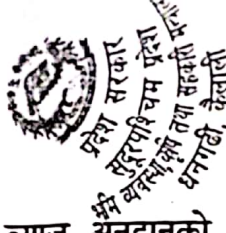 प्रदेश सरकार
सुदूरपश्चिम प्रदेश
भूमि व्यवस्था, कृषि तथा सहकारी
धनगढी, कैलाली
ब्याज अनुदानको